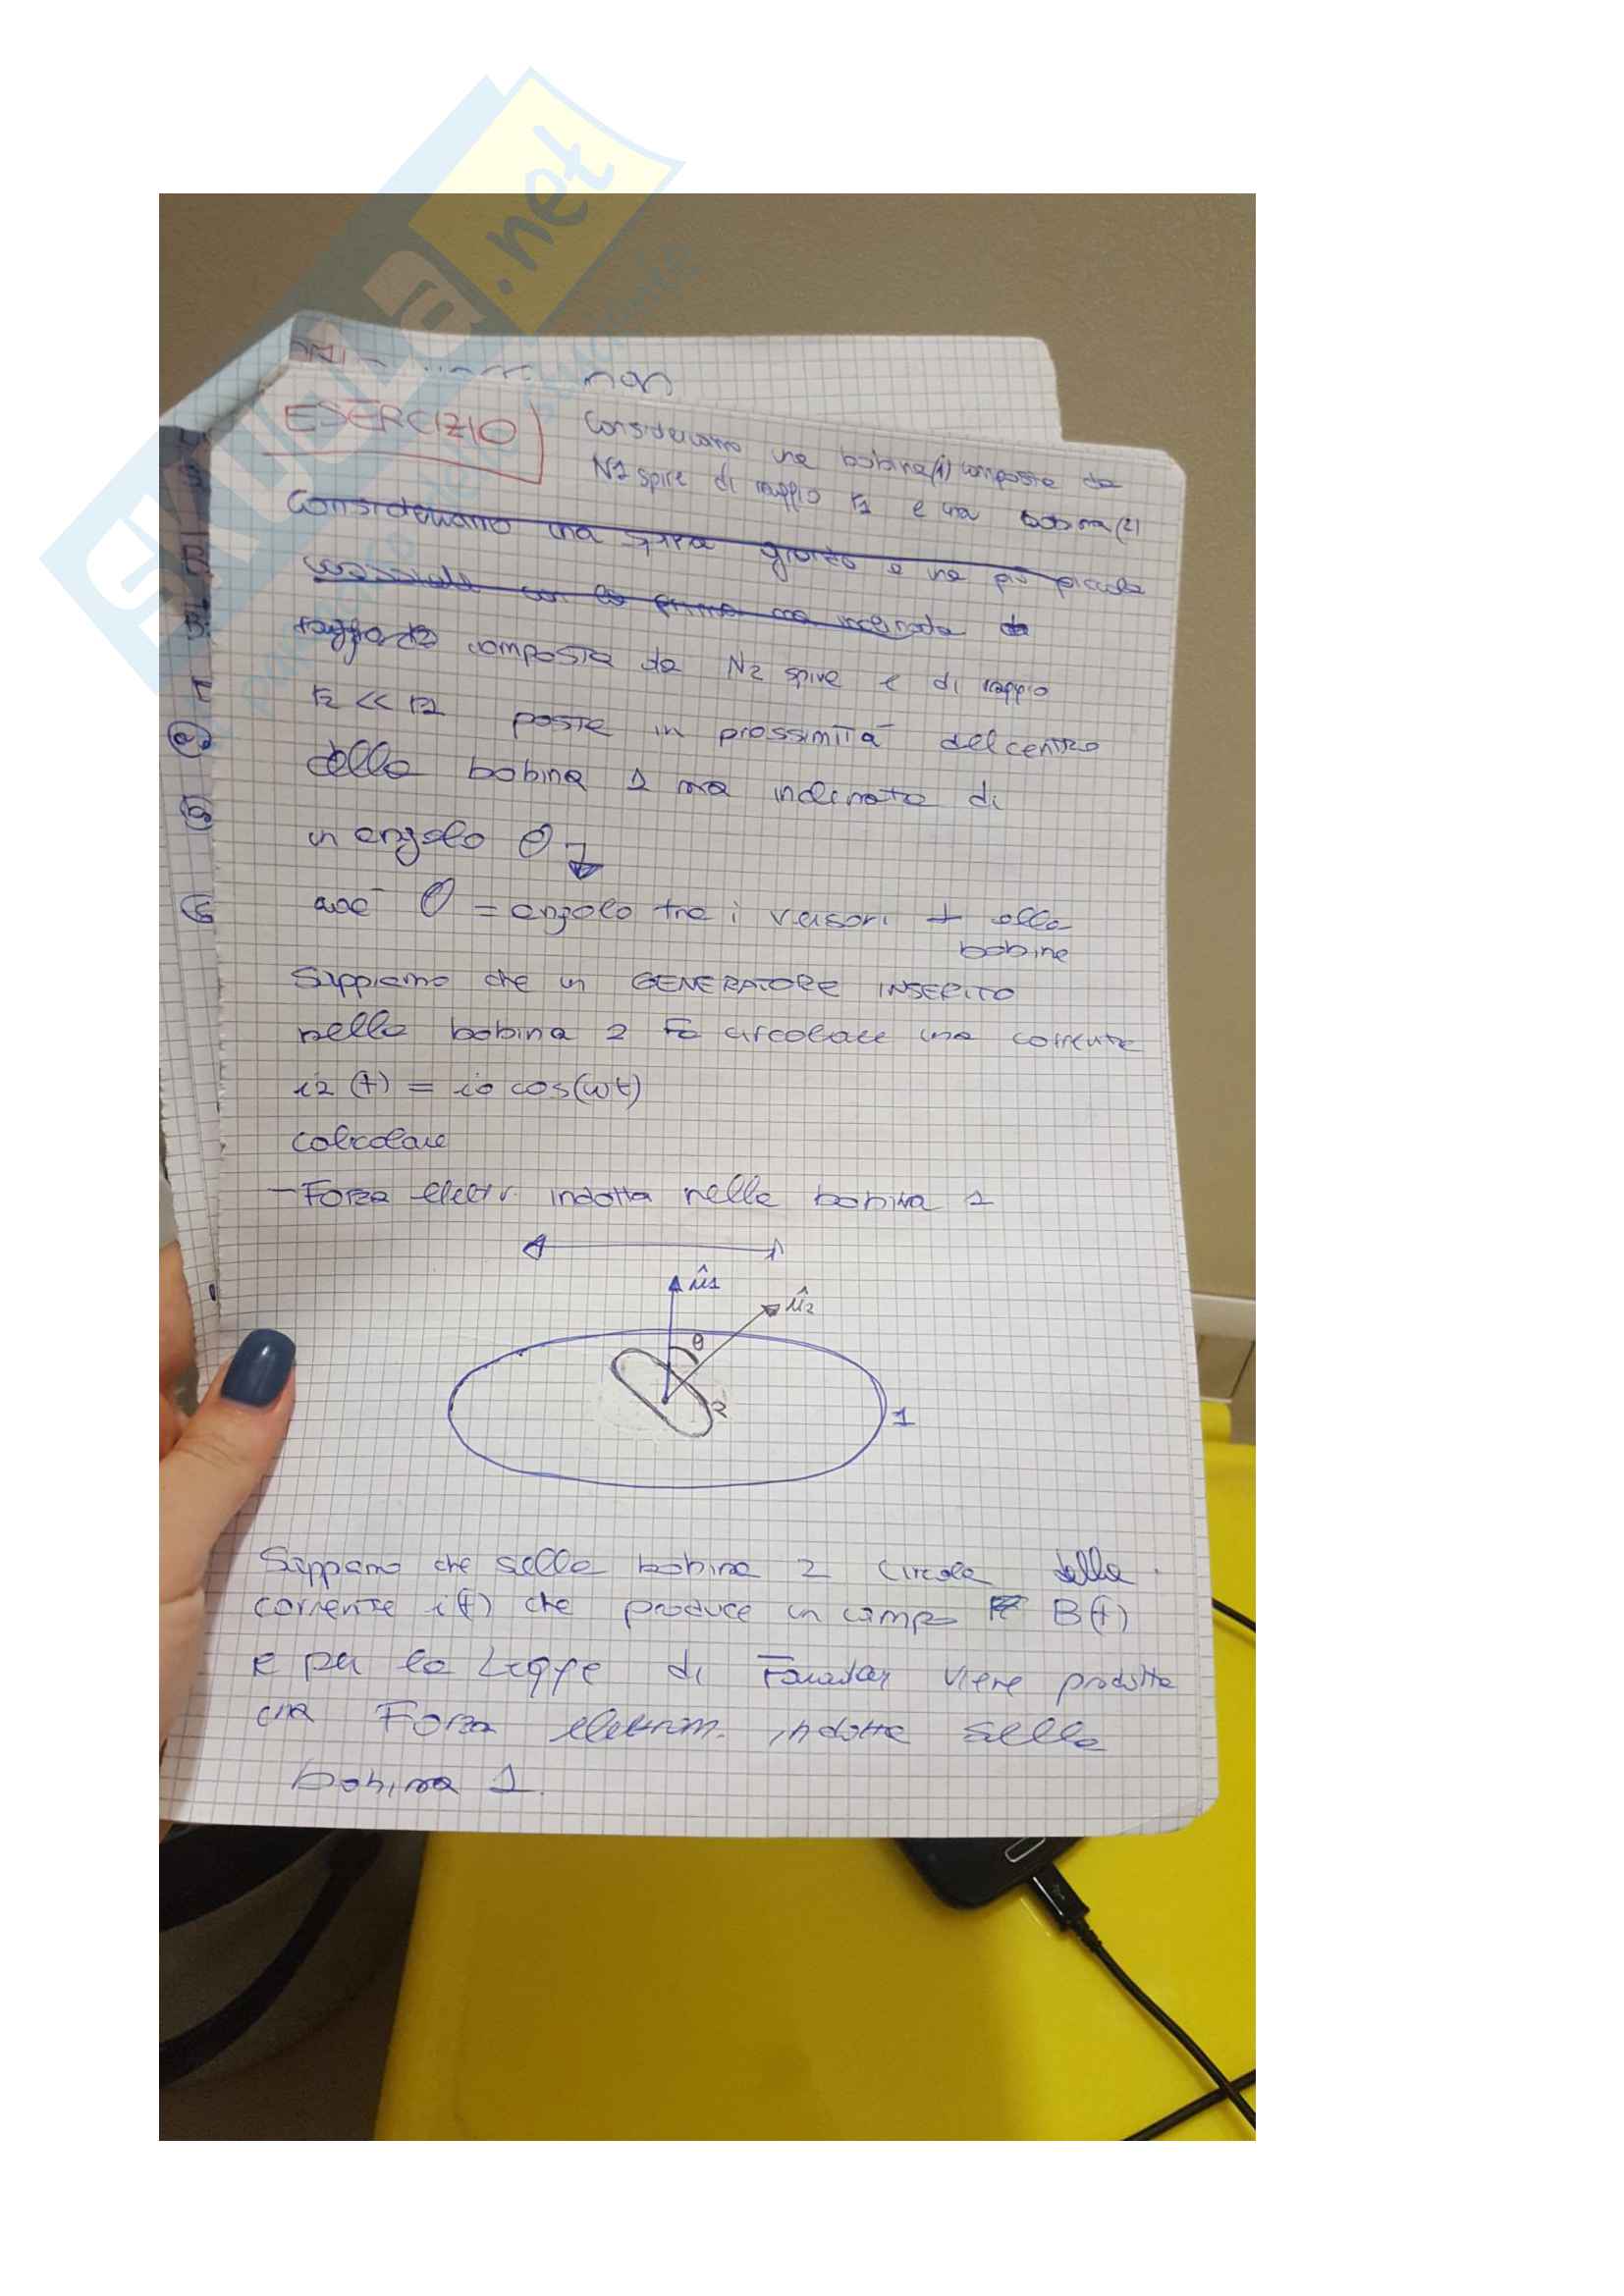 SKUOLA.net
non
ESERCIZIO
Consideriamo una bobina(1) composta da
N1 spire di raggio r1 e una bobina(2)
Consideriamo una spira grande e una più piccola
coassiale con la prima ma inclinata di
raggio r2 composta da N2 spire e di raggio
r2 << r1 poste in prossimità del centro
della bobina 1 ma inclinata di
un angolo θ
cioè θ = angolo tra i versori ⊥ alla
bobine
Sappiamo che un GENERATORE INSERITO
nella bobina 2 fa circolare una corrente
i2 (t) = io cos(wt)
calcolare
- Forza elettr. indotta nella bobina 1
û1
û2
θ
2
1
Sappiamo che sulla bobina 2 circola della
corrente i(t) che produce un campo B(t)
e per la Legge di Faraday viene prodotta
una Forza elettrom. indotta sulla
bobina 1.